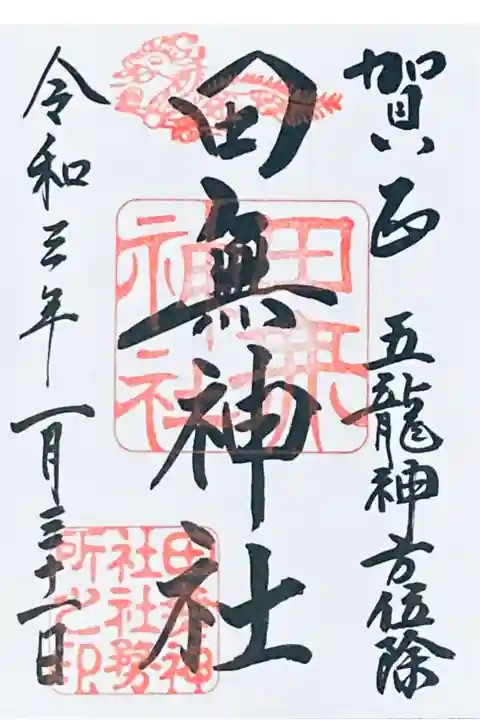 賀正 五龍神方位除
田無神社
令和三年一月三十一日
田無神社
田無神社社務所之印